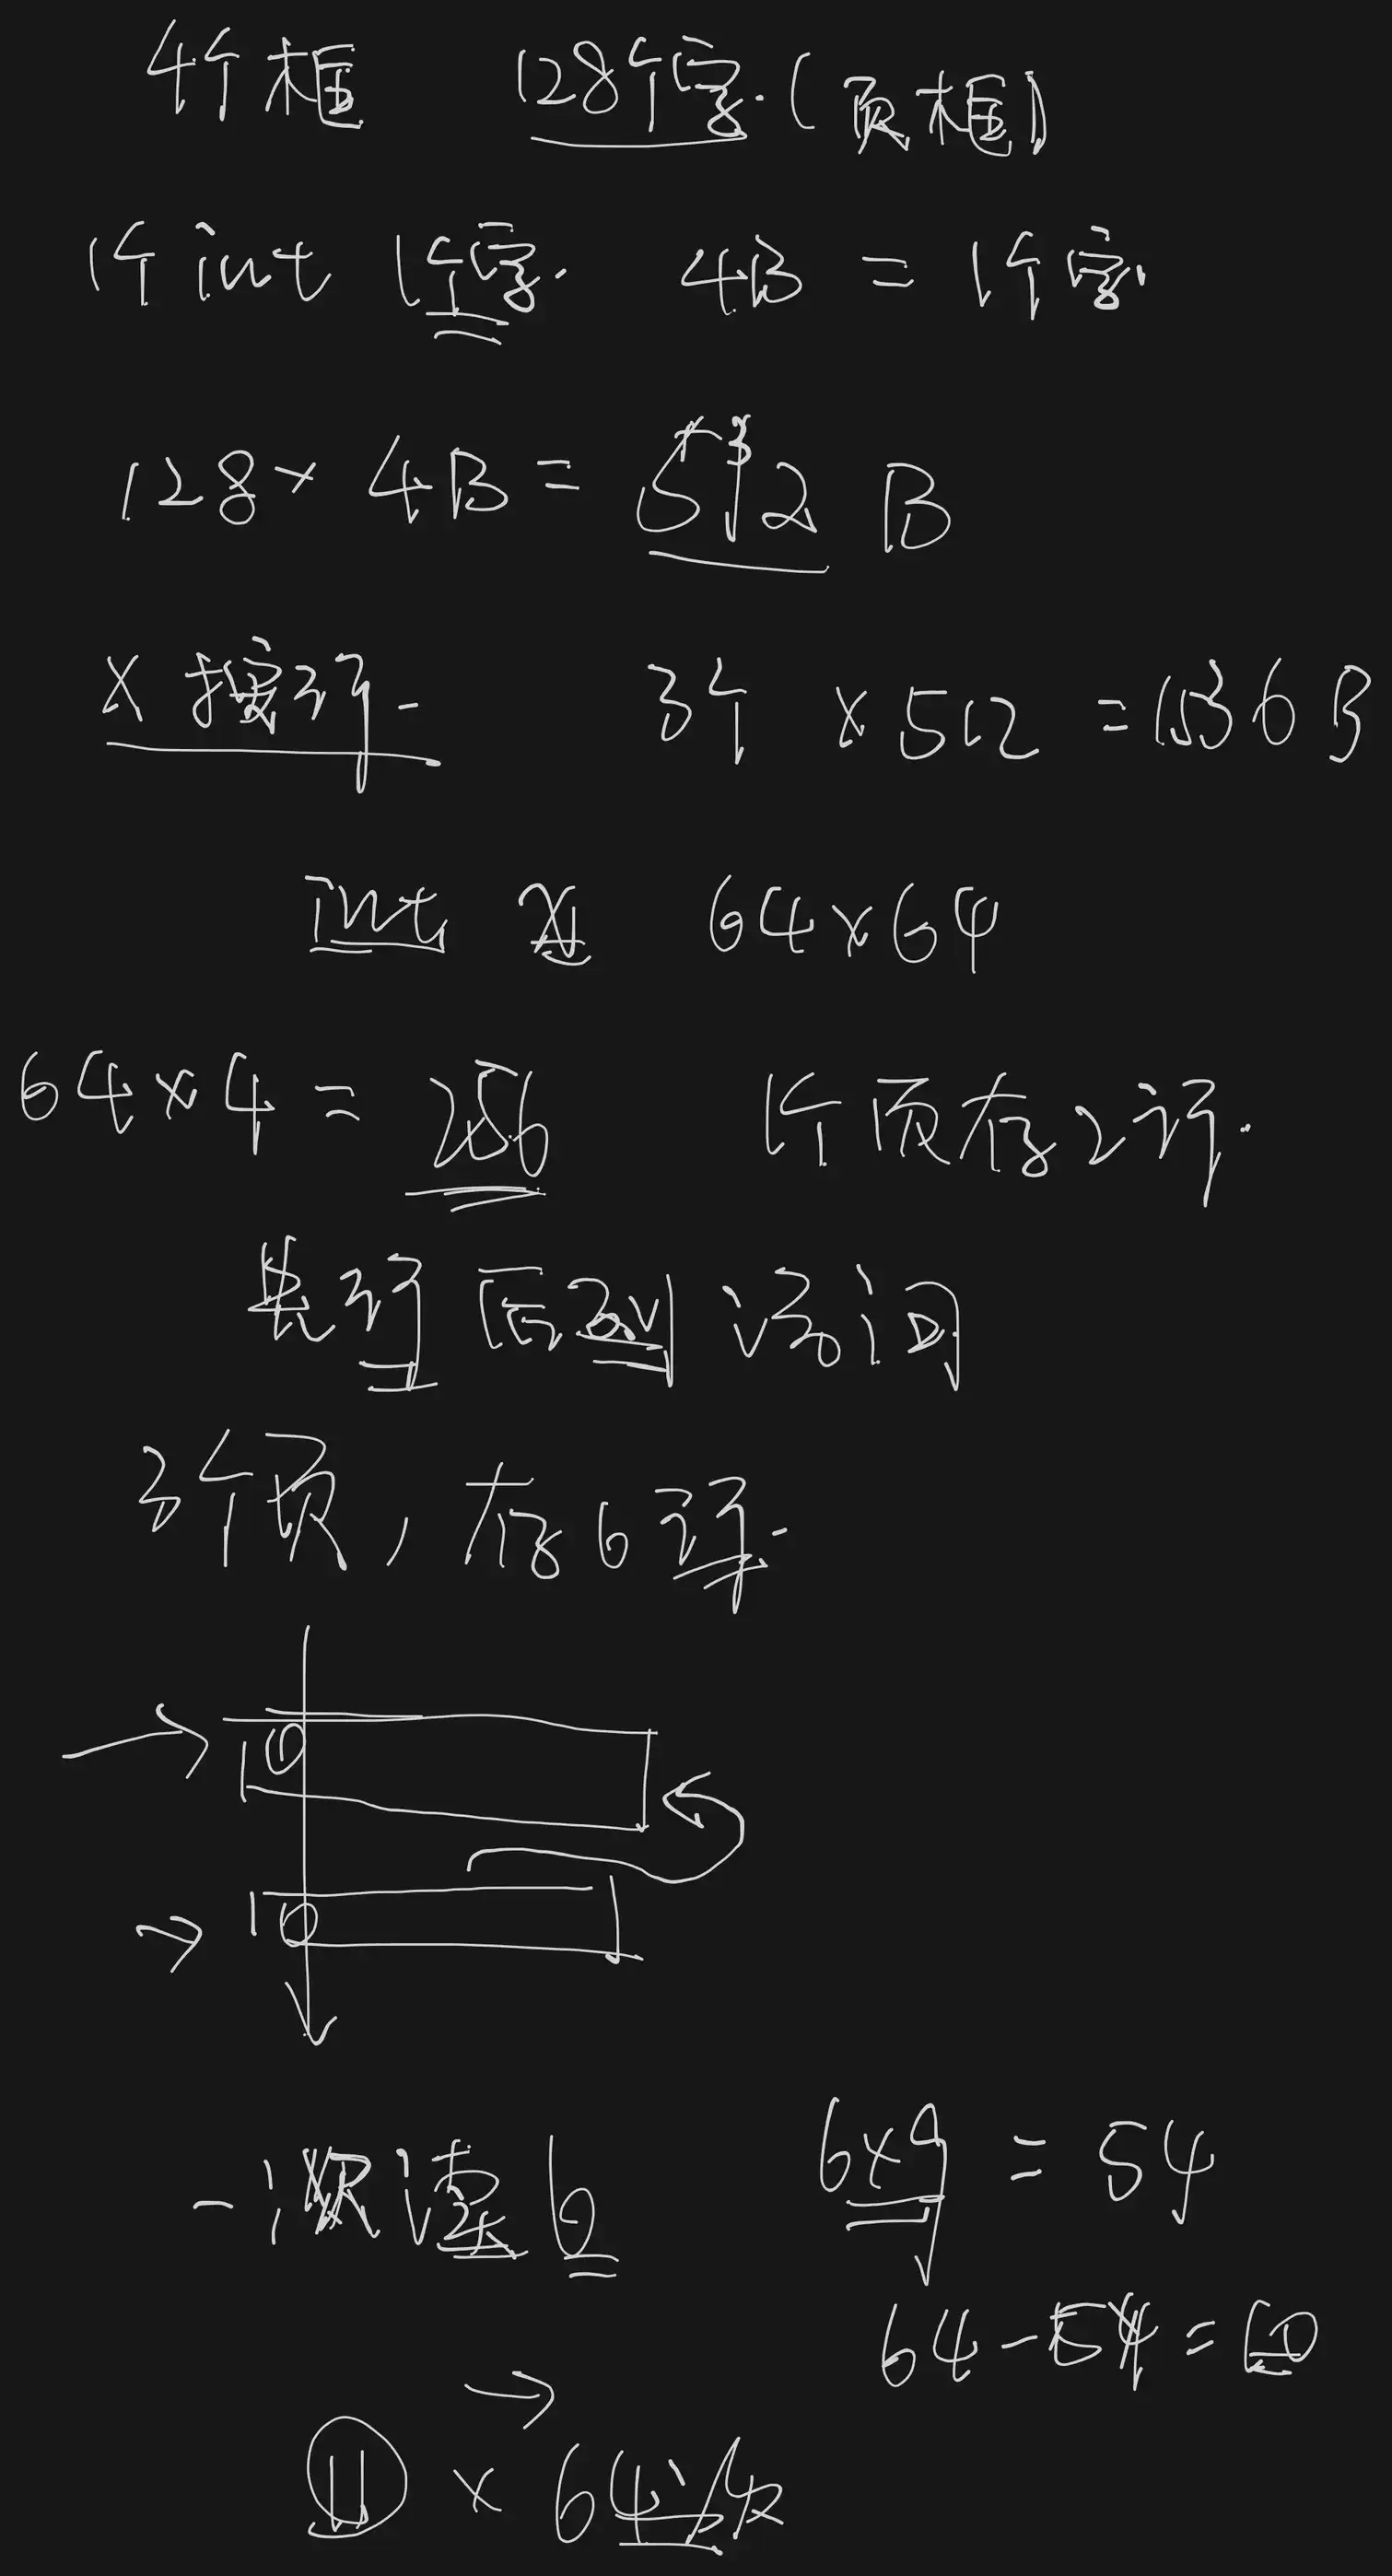 4个框 128个字.(页框)
1个int 1个字. 4B = 1个字.
128× 4B = 512 B
X 按行. 3个 × 512 = 1536 B
int 是 64×64
64×4 = 256 1个页存2行.
先行后列访问
3个页, 存6行.
一次读6 6×9 = 54
64-54=10
11 × 64次